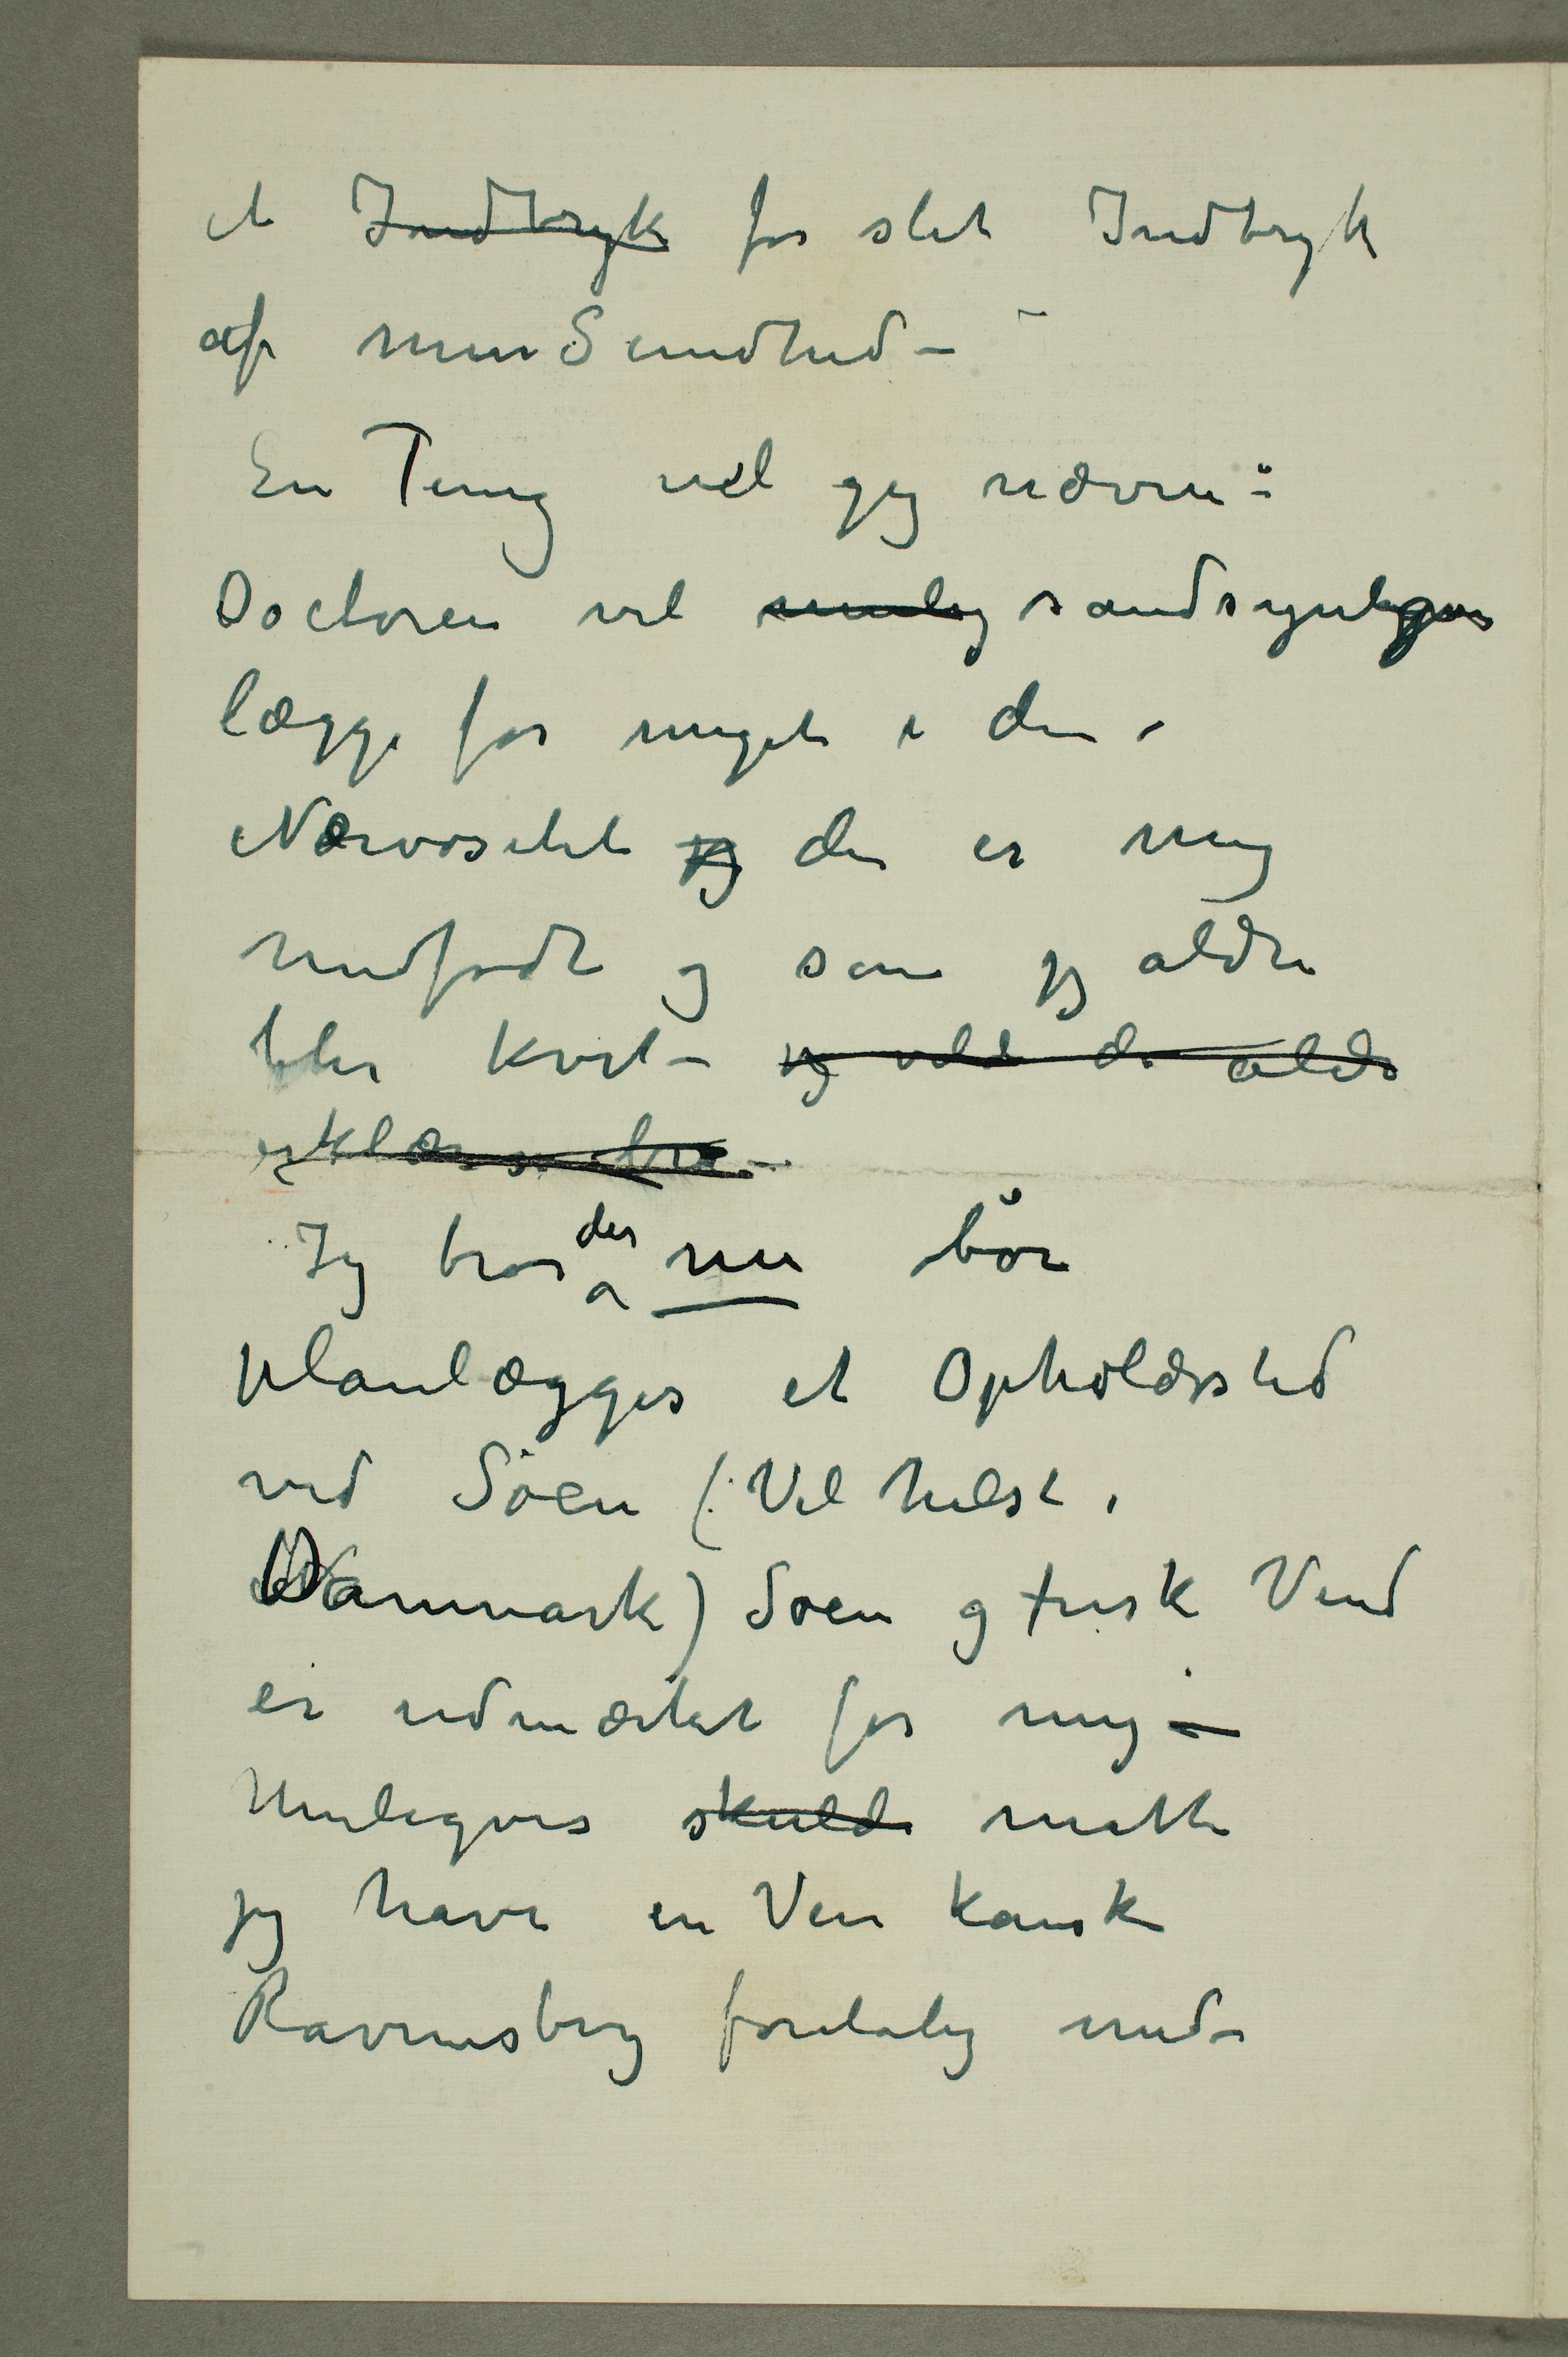 et Indtryk for slet Indtryk
af min Sundhed –
En Ting vil jeg nævne:
Doctoren vil mulig sandsynligvis
lægge for meget i den
Nærvøsitet jeg der er mig
medfødt og som jeg aldri
blir kvit – jeg vilde da aldri
erklæres
Jeg tror der nu bør
planlægges et Opholdssted
ved Søen (Vel helst i
Danmark) Søen og frisk Vind
er udmærket for mig –
Muligvis skulde måtte
jeg have en Ven kanske
Ravensberg foreløbig med